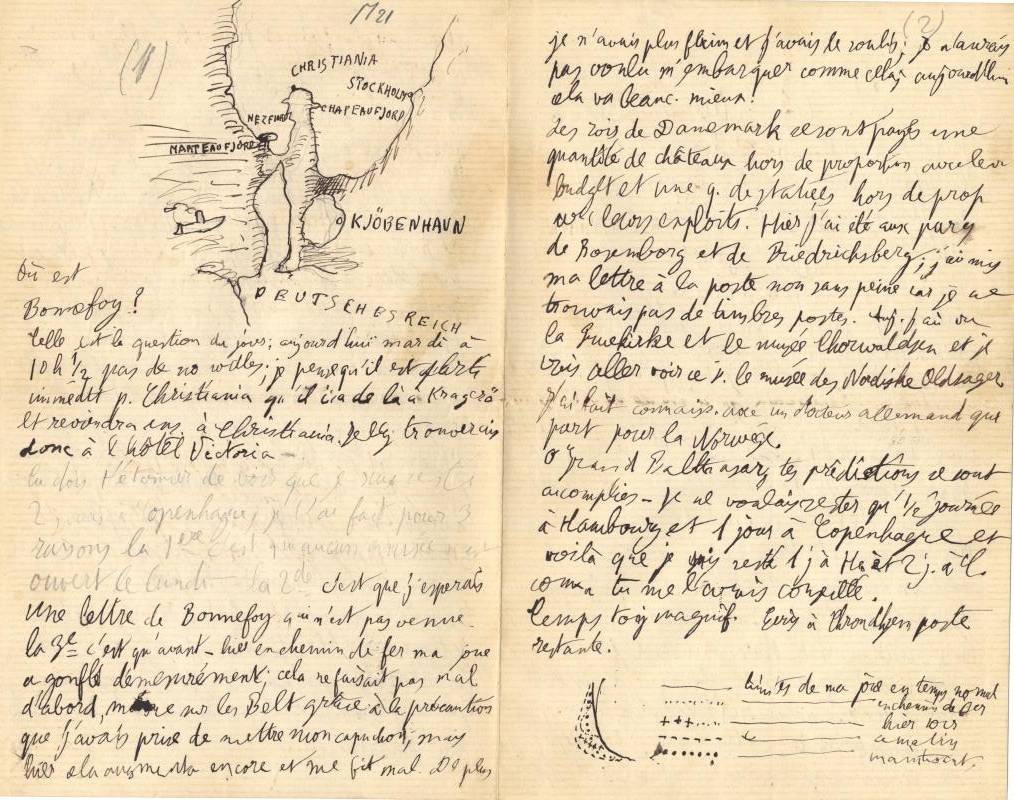 (1)
1721
CHRISTIANIA
STOCKHOLM
CHAPEAUFJORD
NEZFJORD
MARTEAUFJORD
KJÖBENHAUN
DEUTSCHES REICH
Où est
Bonnefoy?
Telle est la question du jour; aujourd'hui mardi à
10h 1/2 pas de nouvelles; je pense qu'il est parti
immédt p. Christiania qu'il ira de là à Kragerö
et reviendra ens. à Christiania. Je l'y trouverais
donc à l'hôtel Victoria —
tu dois t'étonner de voir que je suis resté
2 jours à Copenhague, je l'ai fait pour 3
raisons la 1ère c'est qu'aucun musée n'est
ouvert le lundi — la 2de c'est que j'esperais
une lettre de Bonnefoy qui n'est pas venue.
la 3e c'est qu'avant-hier en chemin de fer ma joue
a gonflé démesurément; cela ne faisait pas mal
d'abord, même sur les Belt grâce à la précaution
que j'avais prise de mettre mon capuchon, mais
hier cela augmenta encore et me fit mal. De plus
(2)
je n'avais plus faim et j'avais le roulis; je n'aurais
pas voulu m'embarquer comme cela; aujourd'hui
cela va beauc. mieux.
Les rois de Danemark se sont payés une
quantité de châteaux hors de proportion avec leur
budget et une q. de statues hors de prop
avec leurs exploits. Hier j'ai été aux parcs
de Rosenborg et de Friedrichsberg; j'ai mis
ma lettre à la poste non sans peine car je ne
trouvais pas de timbres postes. Auj. j'ai vu
la Fruekirke et le musée Thorwaldsen et je
vais aller voir ce s. le musée des Nordiske Oldsager
J'ai fait connais. avec un docteur allemand qui
part pour la Norwège
O grand Balthasar, tes prédictions se sont
accomplies — Je ne voulais rester qu'1/2 journée
à Hambourg et 1 jour à Copenhague et
voilà que je suis resté 1 j à H. et 2 j. à C.
comme tu me l'avais conseillé.
Temps touj magnif. Ecris à Throndhjem poste
restante.
limites de ma joue en temps normal
en chemin de fer
hier soir
ce matin
maintenant.